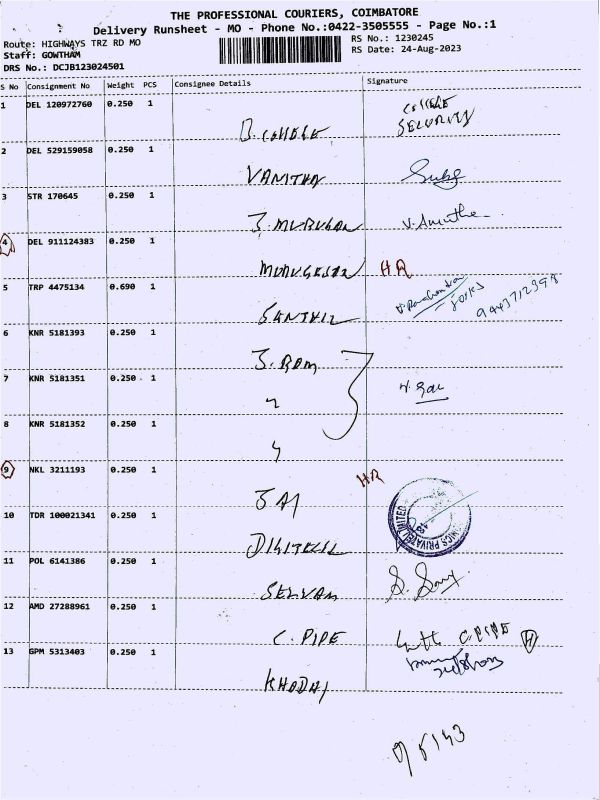 THE PROFESSIONAL COURIERS, COIMBATORE
Delivery Runsheet - MO - Phone No.:0422-3505555 - Page No.:1
Route: HIGHWAYS TRZ RD MO
RS No.: 1230245
Staff: GOWTHAM
RS Date: 24-Aug-2023
DRS No.: DCJB123024501
S No Consignment No Weight PCS Consignee Details Signature
1 DEL 120972760 0.250 1
COLLEGE
SECURITY
COLLEGE
2 DEL 529159058 0.250 1
VANITHA
3 STR 170645 0.250 1
J. MURUGAN
4 DEL 911124383 0.250 1
MURUGESAN HR
5 TRP 4475134 0.690 1
9443712998
SENTHIL
6 KNR 5181393 0.250 1
J. RAM
7 KNR 5181351 0.250 1
8 KNR 5181352 0.250 1
9 NKL 3211193 0.250 1
HR
JAI
10 TDR 100021341 0.250 1
PRIVATE LIMITED
DIGITECIL
11 POL 6141386 0.250 1
SELVAM
12 AMD 27288961 0.250 1
C. PIPE C.PIPE H
13 GPM 5313403 0.250 1
KHADHI